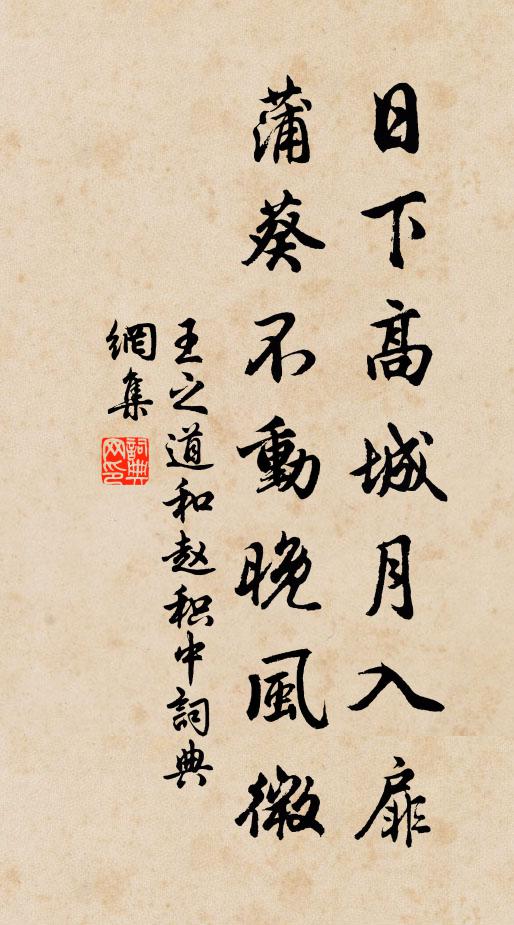 日下高城月入扉
蒲葵不動晚風微
王之道和赵积中詞典
網集
詞典网印